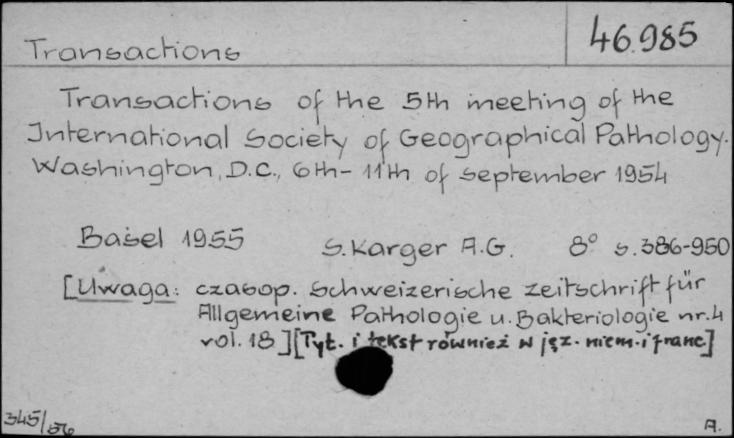 Transactions
46.985
Transactions of the 5th meeting of the
International Society of Geographical Pathology.
Washington, D.C., 6th - 11th of september 1954
Basel 1955 S. Karger A.G. 8° s. 386-950
[Uwaga: czasop. Schweizerische Zeitschrift für
Allgemeine Pathologie u. Bakteriologie nr. 4
vol. 18] [Tyt. i tekst również w jęz. niem. i franc]
345/56
A.